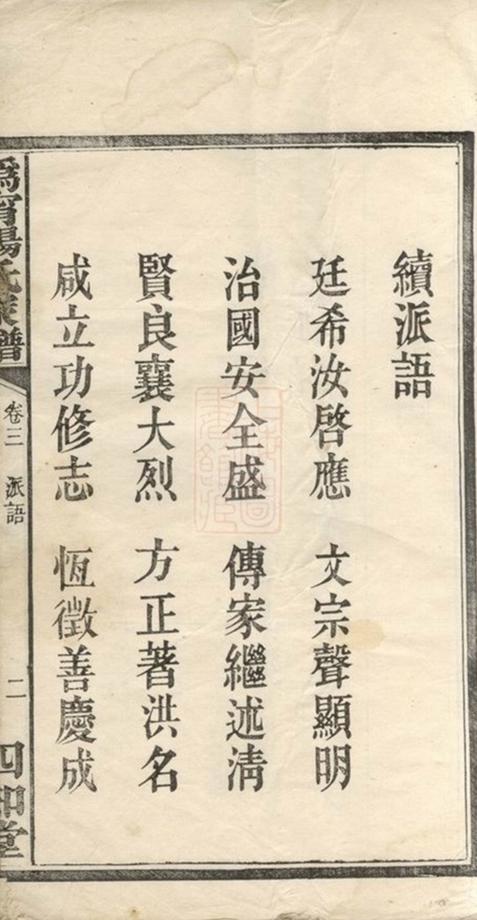 續派語
廷希汝啓應 文宗聲顯明
治國安全盛 傳家繼述清
賢良襄大烈 方正著洪名
咸立功修志 恆徵善慶成
溈甯楊氏家譜
卷三 派語
二
四知堂